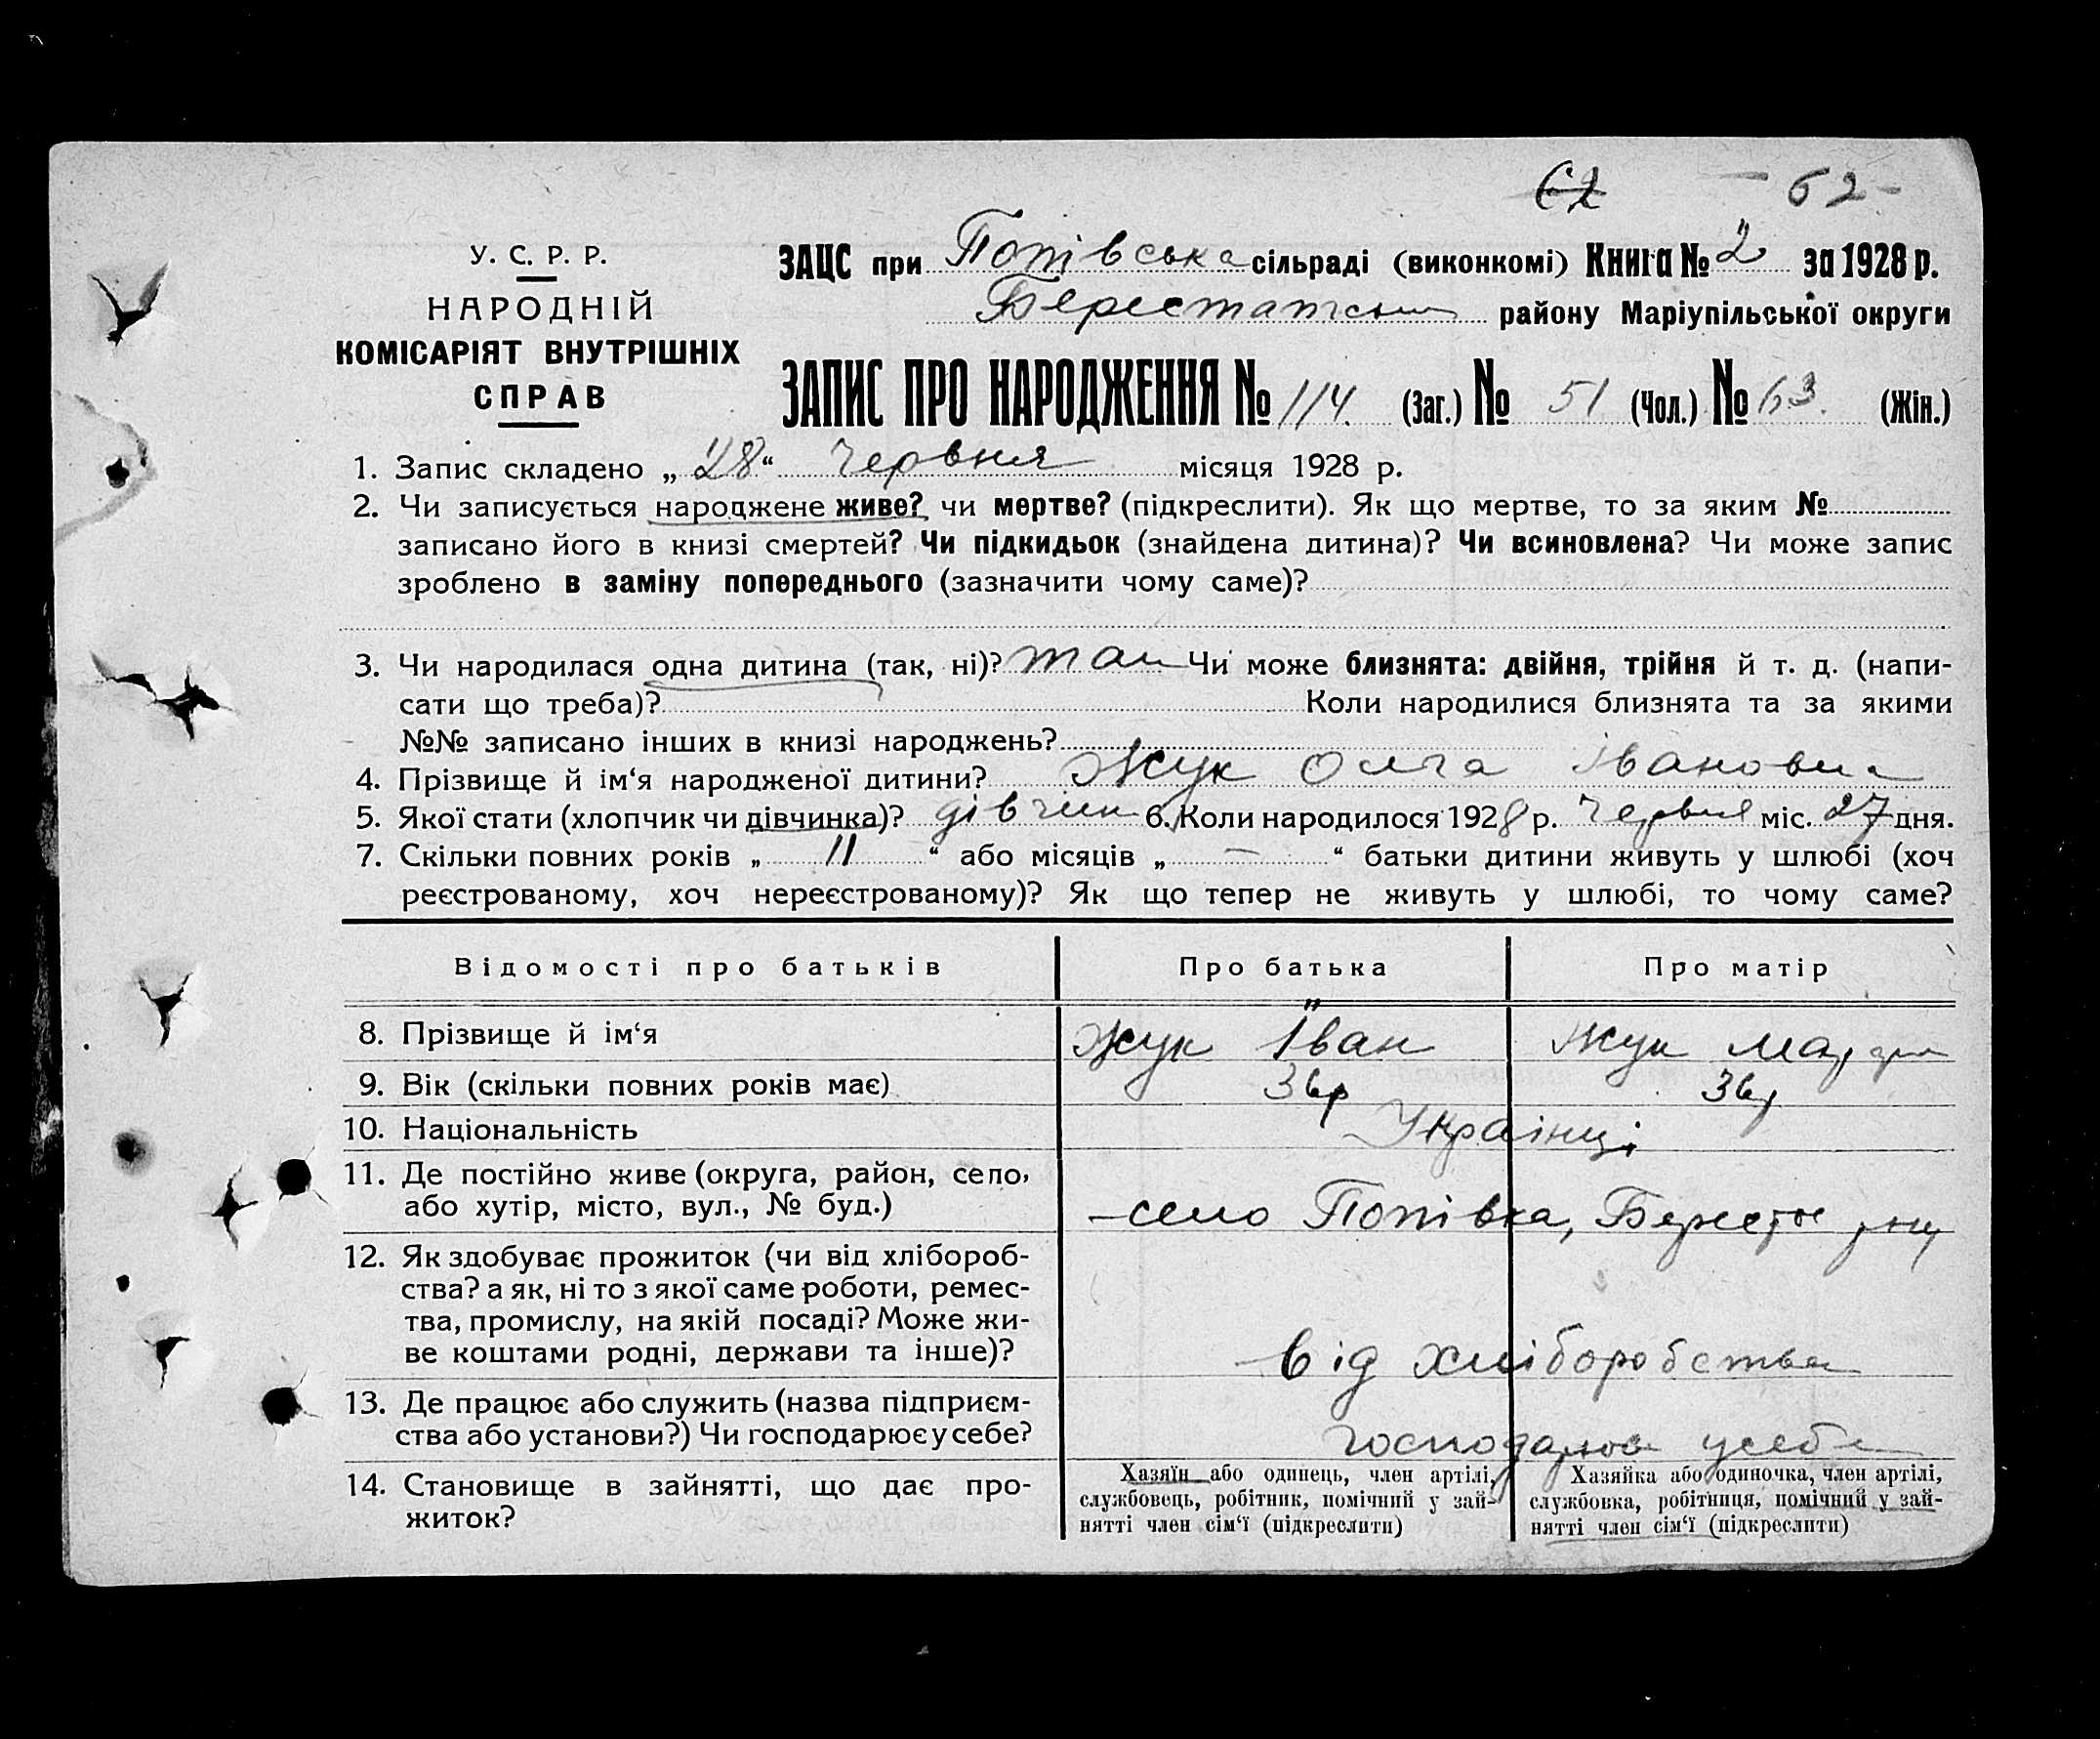 62 - 62 -
У. С. Р. Р.
НАРОДНІЙ
КОМІСАРІЯТ ВНУТРІШНІХ
СПРАВ
ЗАЦС при Попівська сільраді (виконкомі) Книга № 2 за 1928 р.
району Маріупільської округи
ЗАПИС ПРО НАРОДЖЕННЯ № 114. (Заг.) № 51 (Чол.) № 63. (Жін.)
1. Запис складено „ 28 “ Червня місяця 1928 р.
2. Чи записується народжене живе? чи мертве? (підкреслити). Як що мертве, то за яким №
записано його в книзі смертей? Чи підкидьок (знайдена дитина)? Чи всиновлена? Чи може запис
зроблено в заміну попереднього (зазначити чому саме)?
3. Чи народилася одна дитина (так, ні)? так Чи може близнята: двійня, трійня й т. д. (напи-
сати що треба)? Коли народилися близнята та за якими
№№ записано інших в книзі народжень?
4. Прізвище й ім‘я народженої дитини? Жук Олга Івановна
5. Якої стати (хлопчик чи дівчинка)? дівчин 6. Коли народилося 1928 р. Червня міс. 27 дня.
7. Скільки повних років „ 11 “ або місяців „ — “ батьки дитини живуть у шлюбі (хоч
реєстрованому, хоч нереєстрованому)? Як що тепер не живуть у шлюбі, то чому саме?
Відомості про батьків Про батька Про матір
8. Прізвище й ім‘я Жук Іван Жук
9. Вік (скільки повних років має) 36р 36р
10. Національність Українці
11. Де постійно живе (округа, район, село,
або хутір, місто, вул., № буд.) - село Попівка,
12. Як здобуває прожиток (чи від хлібороб-
ства? а як, ні то з якої саме роботи, ремес-
тва, промислу, на якій посаді? Може жи-
ве коштами родні, держави та інше)? від хліборобства
13. Де працює або служить (назва підприєм-
ства або установи?) Чи господарює у себе? господарює усебе
14. Становище в зайнятті, що дає про-
житок?
Хазяїн або одинець, член артілі,
службовець, робітник, помічний у зай-
нятті член сім‘ї (підкреслити)
Хазяйка або одиночка, член артілі,
службовка, робітниця, помічний у зай-
нятті член сім‘ї (підкреслити)